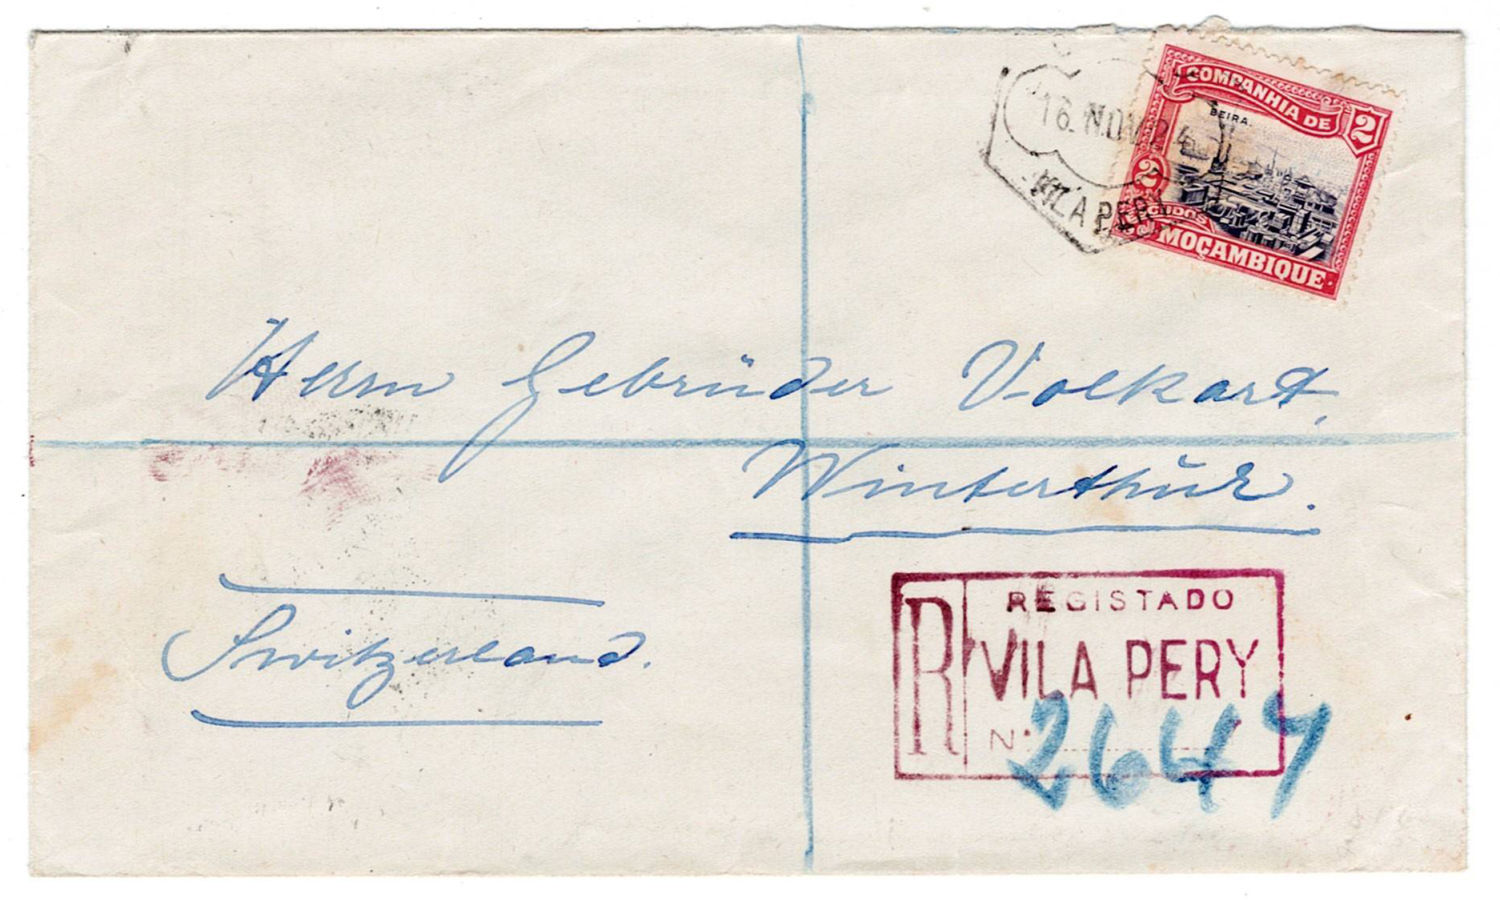 COMPANHIA DE
2
BEIRA.
2
MOÇAMBIQUE
16. NOV
VILA PERY
Herrn Gebrüder Volkart,
Winterthŭr.
Switzerland.
R
REGISTADO
VILA PERY
Nº 2647